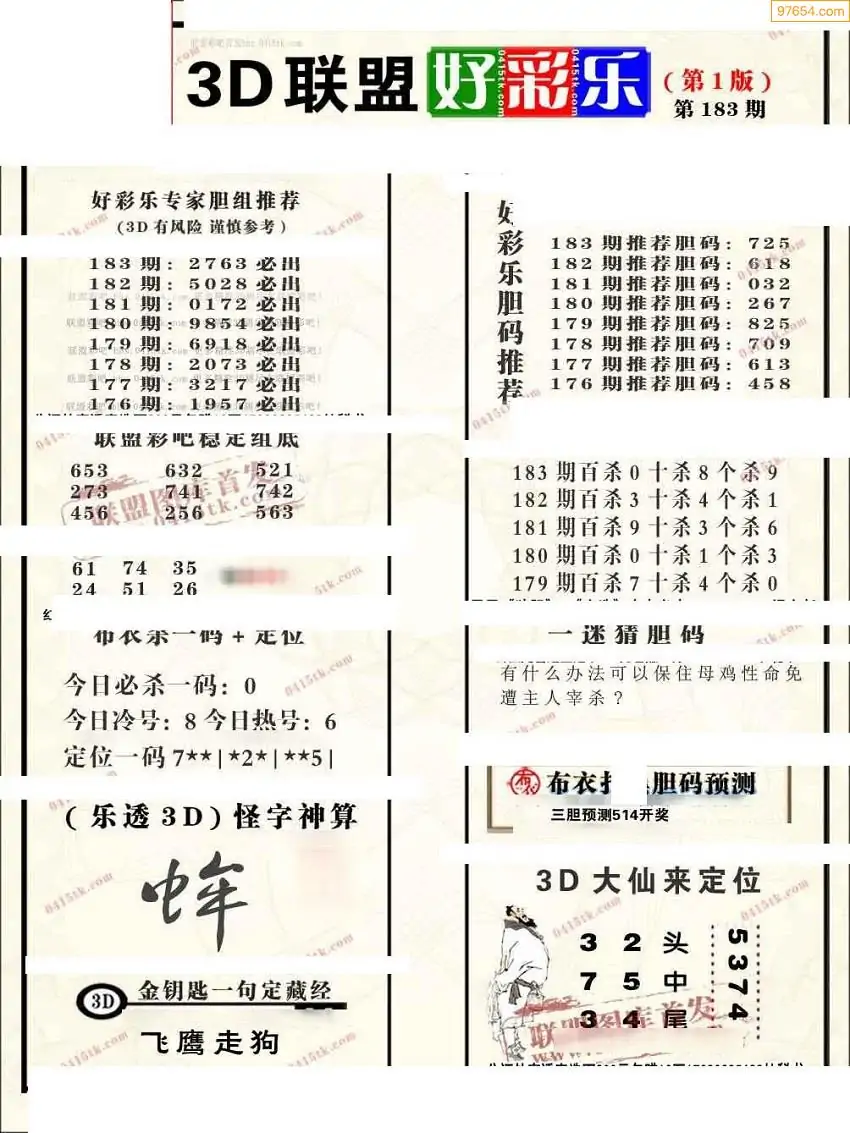 97654.com
3D联盟好彩乐(第1版)
第183期
好彩乐专家胆组推荐
(3D有风险 谨慎参考)
183期: 2763必出
182期: 5028必出
181期: 0172必出
180期: 9854必出
179期: 6918必出
178期: 2073必出
177期: 3217必出
176期: 1957必出
联盟彩吧稳定组底
653 632 521
273 741 742
456 256 563
61 74 35
24 51 26
布衣杀一码+定位
今日必杀一码: 0
今日冷号: 8 今日热号: 6
定位一码7**|*2*|**5|
(乐透3D)怪字神算
金钥匙一句定藏经
3D
飞鹰走狗
好彩乐胆码推荐
183期推荐胆码: 725
182期推荐胆码: 618
181期推荐胆码: 032
180期推荐胆码: 267
179期推荐胆码: 825
178期推荐胆码: 709
177期推荐胆码: 613
176期推荐胆码: 458
183期百杀0十杀8个杀9
182期百杀3十杀4个杀1
181期百杀9十杀3个杀6
180期百杀0十杀1个杀3
179期百杀7十杀4个杀0
一迷猜胆码
有什么办法可以保住母鸡性命免
遭主人宰杀?
布衣 胆码预测
三胆预测514开奖
3D大仙来定位
3 2 头
7 5 中
3 4 尾
5374
联盟图库首发
0415tk.com